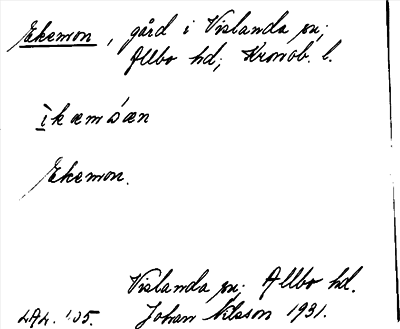 Ekemon, gård i Vislanda sn;
Allbo hd; Kronob. l.
ìkæmóæn
Ekemon.
Vislanda sn; Allbo hd.
LAL. '05. Johan Nilsson 1931.